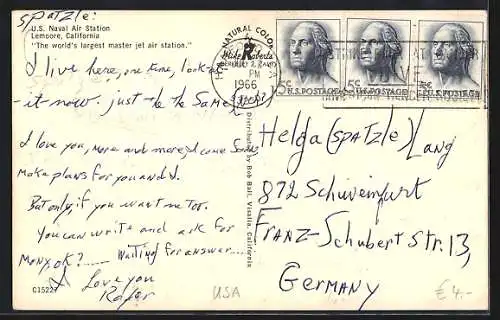 Spatzle:
U.S. Naval Air Station
Lemoore, California
"The world's largest master jet air station."
I live here, one time, look at
it now. just to be the same!
I love you, more and more, come some
make plans for you and I.
But only, if you want me too.
You can write and ask for
Monx ok? waiting for answer....
I love you
Roger
C15227
USA
NATURAL COLOR
Mike Roberts
BERKELEY 2, CALIF.
PM
1966
Distributed by Bob Ball, Visalia, California
5¢ U.S. POSTAGE
5¢ U.S. POSTAGE
5¢ U.S. POSTAGE
Helga (SPATZLE) Lang
872 Schweinfurt
Franz-Schubert Str. 13,
Germany
€ 4.-